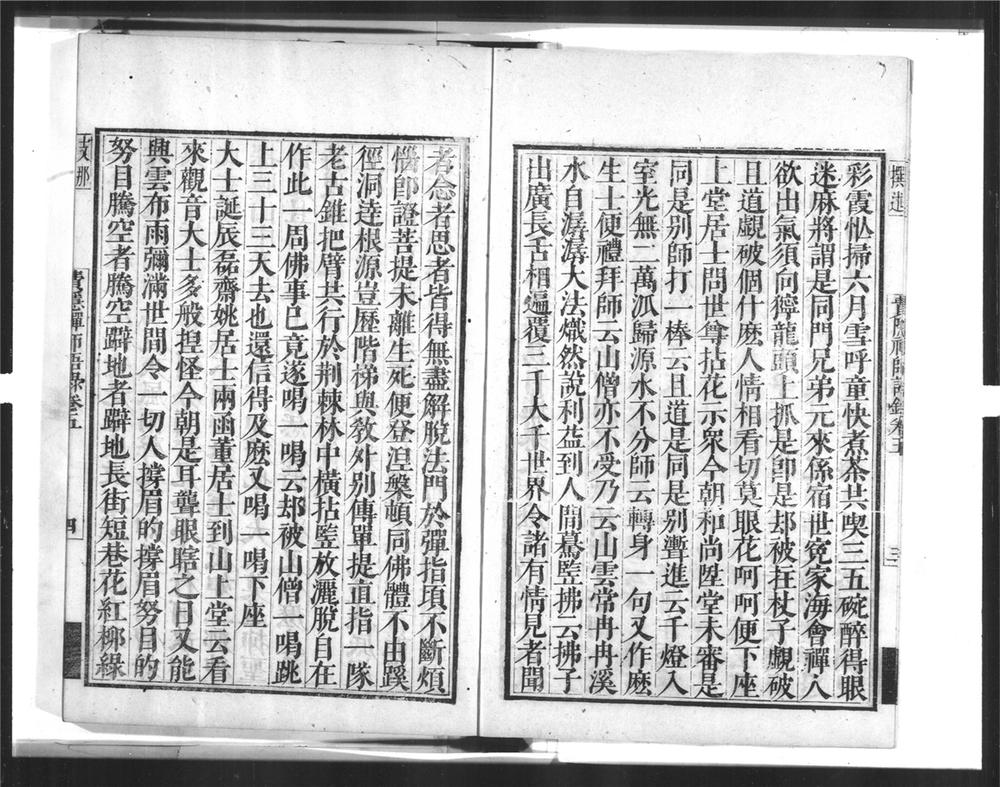 撰述
彩霞忪掃六月雪呼童快煮茶共喫三五碗醉得眼
迷麻將謂是同門兄弟元來係宿世寃家海會禪人
欲出氣須向獰龍頭上抓是即是却被拄杖子覷破
且道覷破個什麽人情相看切莫眼花呵呵便下座
上堂居士問世尊拈花示衆今朝和尚陞堂未審是
同是别師打一棒云且道是同是别漸進云千燈入
室光無二萬派歸源水不分師云轉身一句又作麽
生士便禮拜師云山僧亦不受乃云山雲常冉冉溪
水自潺潺大法熾然說利益到人間驀竪拂云拂子
出廣長舌相遍覆三千大千世界令諸有情見者聞
費隱禪師語錄卷五
三
者念者思者皆得無盡解脫法門於彈指頃不斷煩
惱即證菩提未離生死便登涅槃頓同佛體不由蹊
徑洞達根源豈歷階梯與敎外别傳單提直指一隊
老古錐把臂共行於荆棘林中橫拈竪放灑脫自在
作此一周佛事已竟遂喝一喝云却被山僧一喝跳
上三十三天去也還信得及麽又喝一喝下座
大士誕辰磊齋姚居士兩函董居士到山上堂云看
來觀音大士多般揑怪今朝是耳聾眼瞎之日又能
興雲布雨彌滿世間令一切人撐眉的撐眉努目的
努目騰空者騰空躃地者躃地長街短巷花紅柳綠
支那
費隱禪師語錄卷五
四